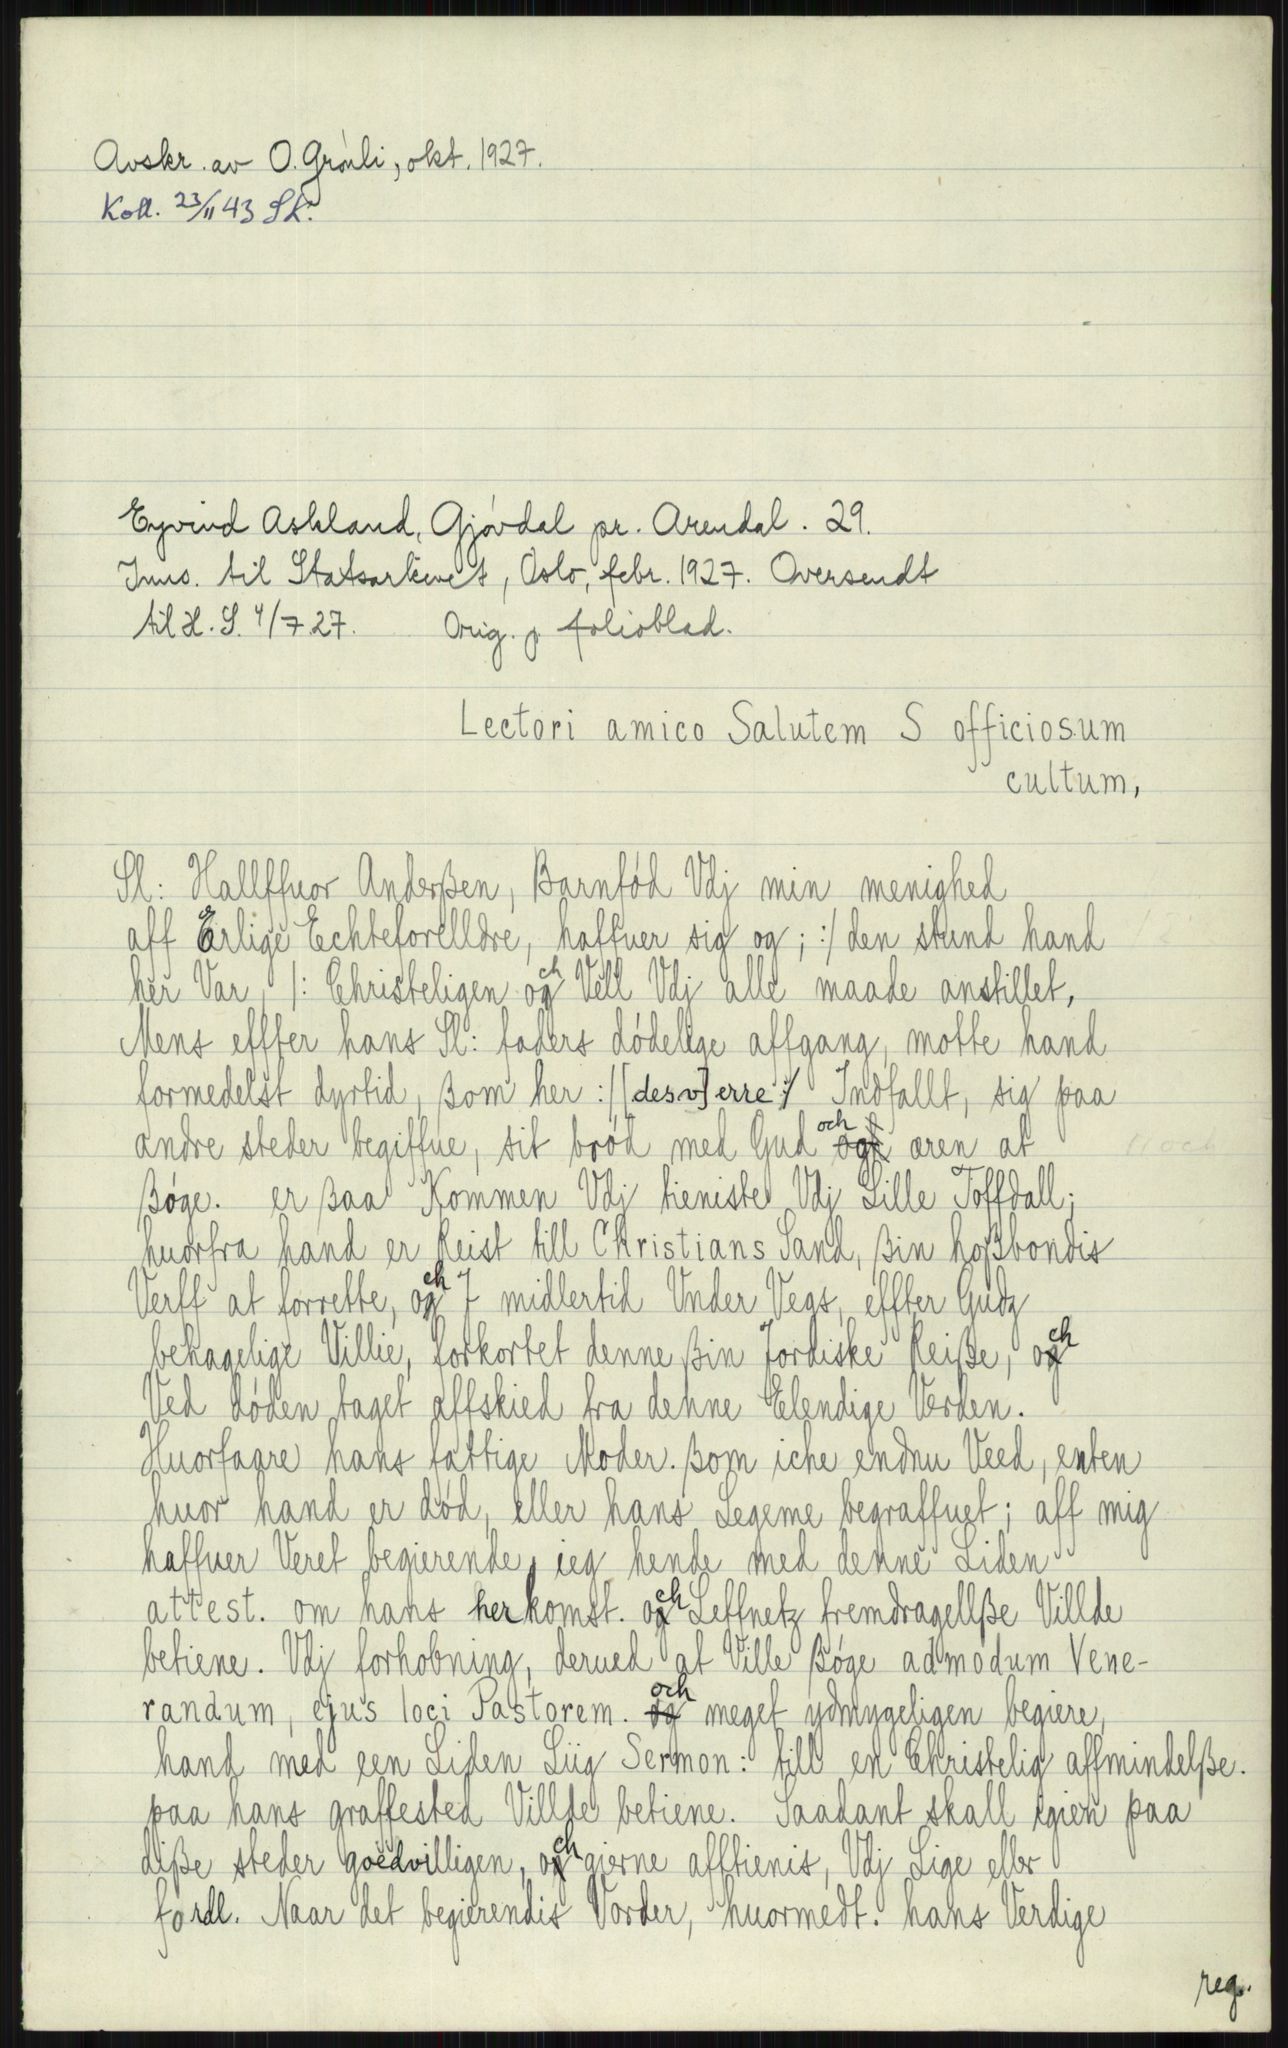 Avskr. av O. Grónli, okt. 1927.
Koll. 23/11 43 Sk.
Eyvind Askland, Gjóvdal pr. Arendal. 29.
Inns. til Statsarkivet, Oslo, febr. 1927. Oversendt
til H. S. 4/7 27. Orig. p folioblad.
Lectori amico Salutem S officiosum
cultum,
Sl: Hallffuor Anderßen, Barnfód Vdj min menighed
aff Erlige Echteforelldre, haffuer sig og ; :/ den stund hand
her Var, /: Christeligen och Vell Vdj alle maade anstillet,
Mens effter hans Sl: faders dódelige affgang, motte hand
formedelst dyrtid, ßom her :/ [desv]erre :/ Indfallt, sig paa
andre steder begiffue, sit bród med Gud och æren at
ßóge. er ßaa Kommen Vdj tieniste Vdj Lille Toffdall;
huorfra hand er Reist till Christians Sand, ßin hoßbondis
Verff at forrette, och I midlertid Vnder Vegs, effter Gudz
behagelige Villie, forkortet denne ßin Jordiske Reiße, och
Ved dóden taget affskied fra denne Elendige Verden.
Huorfaare hans fattige Moder. ßom iche endnu Veed, enten
huor hand er dód, eller hans Legeme begraffuet; aff mig
haffuer Veret begierende, ieg hende med denne Liden
attest. om hans herkomst. och Leffnetz fremdragellße Villde
betiene. Vdj forhobning, derued at Ville ßóge admodum Vene-
randum, ejus loci Pastorem. och meget ydmygeligen begiere,
hand med een Liden Liig Sermon: till en Christelig affmindelße.
paa hans graffested Villde betiene. Saadant skall igien paa
diße steder goedvilligen, och gierne afftienis, Vdj Lige eller
fordl. Naar det begierendis Vorder, huormedt. hans Verdige
reg.